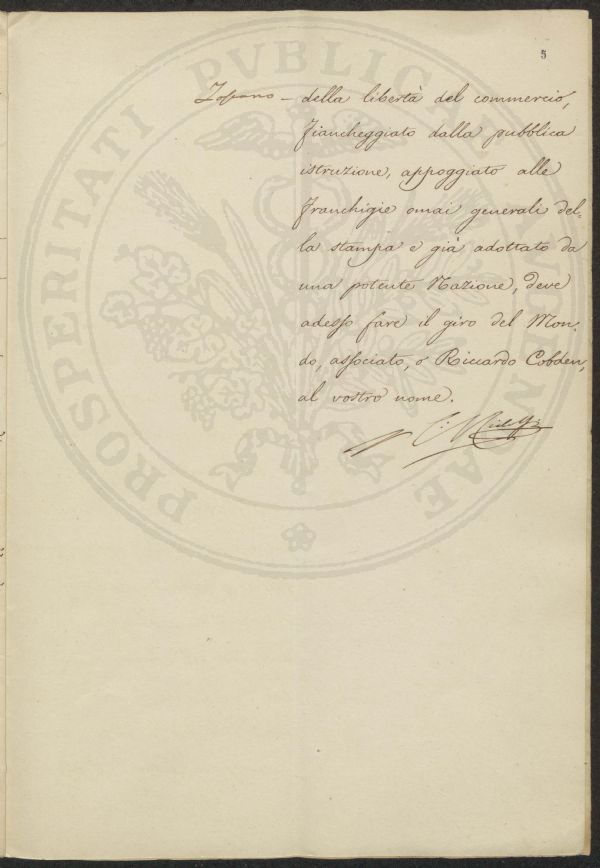 5
della libertà del commercio,
fiancheggiato dalla pubblica
istruzione, appoggiato alle
franchigie omai generali del=
la stampa e già adottato da
una potente Nazione, deve
adesso fare il giro del Mon-
do, associato, o Riccardo Cobden,
al vostro nome.
PROSPERITATI PVBLICAE